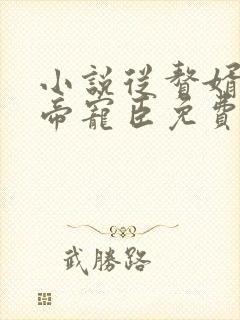 小說從贅婿
帝寵臣免費
武勝路